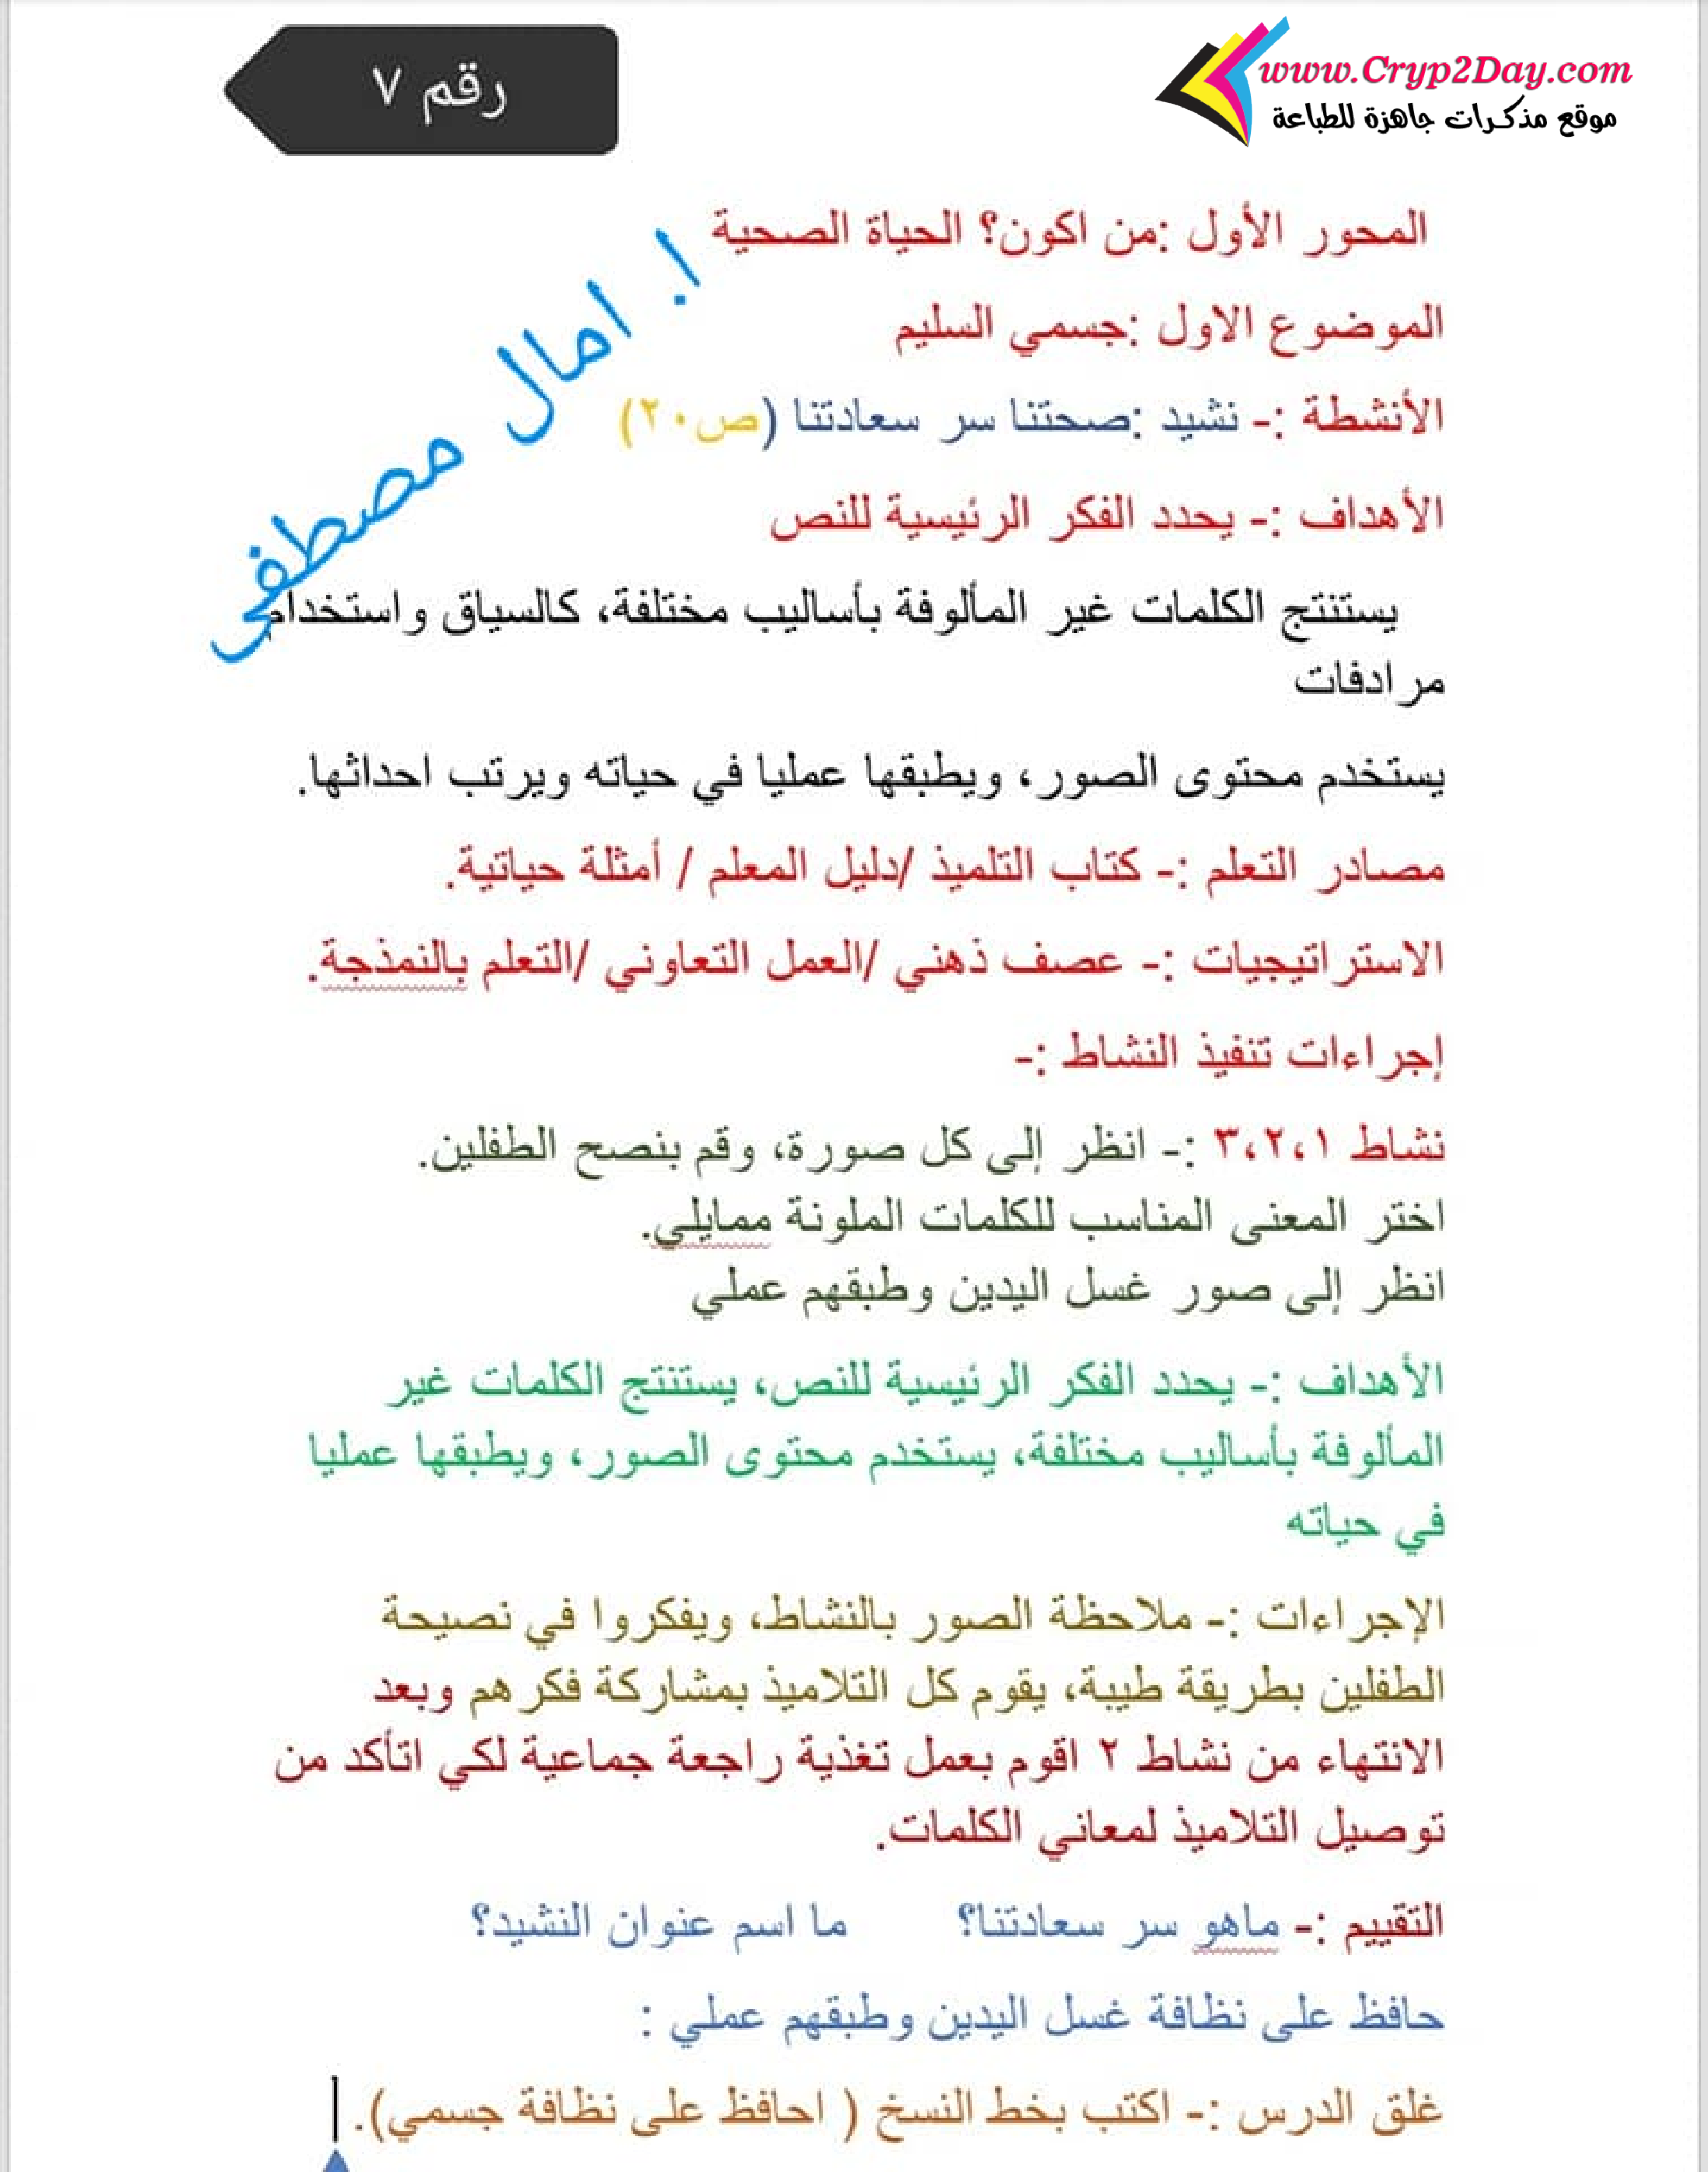 www.Cryp2Day.com
موقع مذكرات جاهزة للطباعة
رقم ٧
المحور الأول :من اكون؟ الحياة الصحية
ا. امال مصطفى
الموضوع الاول :جسمي السليم
الأنشطة :- نشيد :صحتنا سر سعادتنا (ص٢٠)
الأهداف :- يحدد الفكر الرئيسية للنص
يستنتج الكلمات غير المألوفة بأساليب مختلفة، كالسياق واستخدام
مرادفات
يستخدم محتوى الصور، ويطبقها عمليا في حياته ويرتب احداثها.
مصادر التعلم :- كتاب التلميذ /دليل المعلم / أمثلة حياتية.
الاستراتيجيات :- عصف ذهني /العمل التعاوني /التعلم بالنمذجة.
إجراءات تنفيذ النشاط :-
نشاط ٣،٢،١ :- انظر إلى كل صورة، وقم بنصح الطفلين.
اختر المعنى المناسب للكلمات الملونة ممايلي.
انظر إلى صور غسل اليدين وطبقهم عملي
الأهداف :- يحدد الفكر الرئيسية للنص، يستنتج الكلمات غير
المألوفة بأساليب مختلفة، يستخدم محتوى الصور، ويطبقها عمليا
في حياته
الإجراءات :- ملاحظة الصور بالنشاط، ويفكروا في نصيحة
الطفلين بطريقة طيبة، يقوم كل التلاميذ بمشاركة فكرهم وبعد
الانتهاء من نشاط ٢ اقوم بعمل تغذية راجعة جماعية لكي اتأكد من
توصيل التلاميذ لمعاني الكلمات.
التقييم :- ماهو سر سعادتنا؟ ما اسم عنوان النشيد؟
حافظ على نظافة غسل اليدين وطبقهم عملي :
غلق الدرس :- اكتب بخط النسخ ( احافظ على نظافة جسمي).